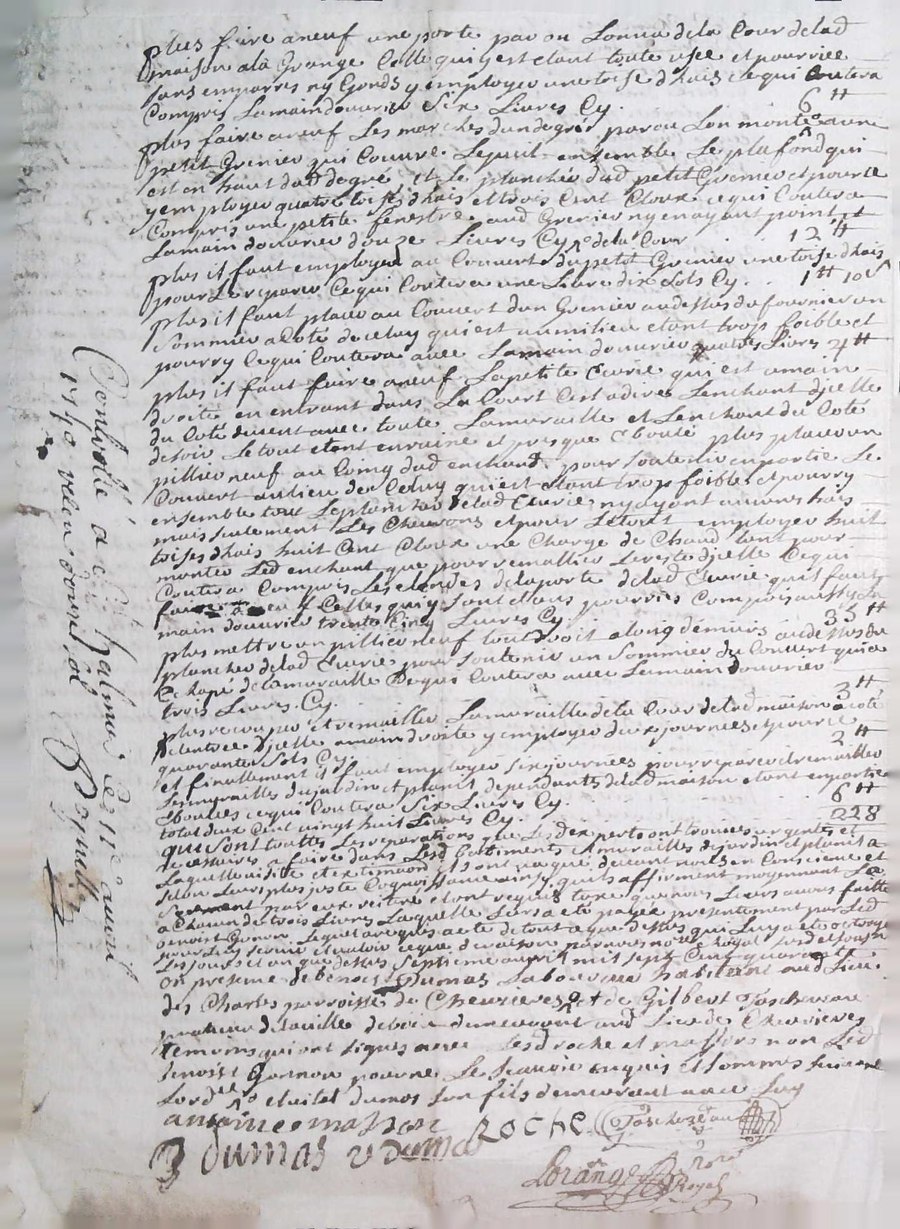 plus faire aneuf une porte par ou Lonva dela Cour delad
maison ala Grange Celle qui y est etant toute usée et pourriee
sans emparres ny Gonds y employer une toise dhais ce qui Coutera
Compris Lamain douvrier Six Livres Cy. 6 ₶
plus faire aneuf Les marches dun degré par ou Lon monte a un
petit Grenier qui Couvre Le puit ensemble Le plafond qui
est en haut dud degré et Le plancher dud petit Grenier et pour ce
y employer quatre toises dhais et trois Cent Cloux ce qui Coutera
Compris une petite fenestre aud Grenier ny en ayant point et
Lamain douvrier douze Livres Cy 12 ₶
plus il faut employer au Couvert du petit Grenier une toise dhais
pour Le reparer Ce qui Coutera une Livre dix Sols Cy. 1 ₶ 10 s
plus il faut placer au Couvert dun Grenier au dessus du fournier un
Sommier a Coté de celuy qui est au milieu etant trop foible et
pourry Ce qui Coutera avec Lamain douvrier quatre Livres 4 ₶
plus il faut faire aneuf La petite Ecurie qui est a main
droite en entrant dans La Court Cest adire Lenchant djcelle
du Coté de vent avec toute Lamuraille et Lenchant du Coté
de soir Le tout etant en ruine et presque Eboulé plus placer un
pillier neuf au Coing dud enchant pour soutenir en partie Le
Couvert au lieu de Celuy qui est etant trop foible et pourry
ensemble tout Le plancher delad Ecurie ny ayant aucuns hais
mais seulement Les Chevrons et pour Le tout employer huit
toises dhais huit Cent Cloux une Charge de Chaud tant pour
monter Led enchant que pour remallier Le reste djcelle Ce qui
Coutera Compris Les de la porte delad Ecurie quil faut
faire aneuf Celles qui y sont etant pourries Compris aussy La
main douvrier trente Cinq Livres Cy. 35 ₶
plus mettre un pillier neuf tout droit au dessus du
plancher delad Ecurie pour soutenir un Sommier du Couvert qui a
Echapé de lamuraille Ce qui Coutera avec Lamain douvrier
trois Livres Cy. 3 ₶
plus recouper et remailler Lamuraille dela Cour delad maison a coté
de lentrée djcelle a main droite y employer deux journées et pour ce
quarante Sols Cy. 2 ₶
et finallement il faut employer six journées pour reparer et remailler
Lesmurailles du jardin et plants dependants delad maison etant en partie
Eboulées ce qui Coutera Six Livres Cy. 6 ₶
total deux Cent vingt huit Livres Cy. 228
qui sont touttes Les reparations que Lesd experts ont trouvées urgentes et
necessaires a faire dans Lesd batiments et murailles de jardin et plants a
Laquelle visite et extimaon ils ont vaqué devant nous en Conscience et
selon Leurs plus juste Cognoissance ainsy quils affirment moyennant Le
Serment par eux reitere et ont requis taxe que nous Leurs avons faitte
a Chacun de trois Livres Laquelle Leurs a eté payée presentement par Led
benoist Gonon Lequel a requis acte de tout ce que dessus qui Luy a eté octroyé
pour Luy servir et valoir ce que de raison par nous nore Royal
Les jours et an que dessus Septieme avril mil sept Cent quarante
en presence de benoist Dumas Laboureur habitant aud Lieu
des Charles parroisse de Chevrieres et de Gilbert Joscherau
praticien de laville de demeurant aud Lieu de Chevrieres
temoins qui ont signes avec Lesd roche et masson non Led
benoist Gonon pour ne Le Scavoir enquis et sommés suivant
Lord ce et dumas son fils demeurant avec Luy
antoine masson
Roche
B dumas v dumas
Lorange nore Royal
Conllé a Chalmas Ce 11e avril
1740 recu douze sols